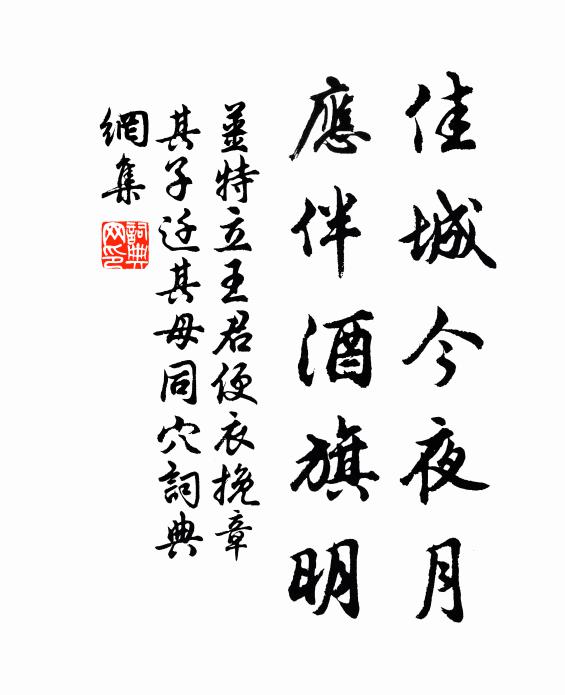 佳城今夜月
應伴酒旗明
姜特立王君便衣挽章
其子迁其母同穴詞典
網集
詞典
网印